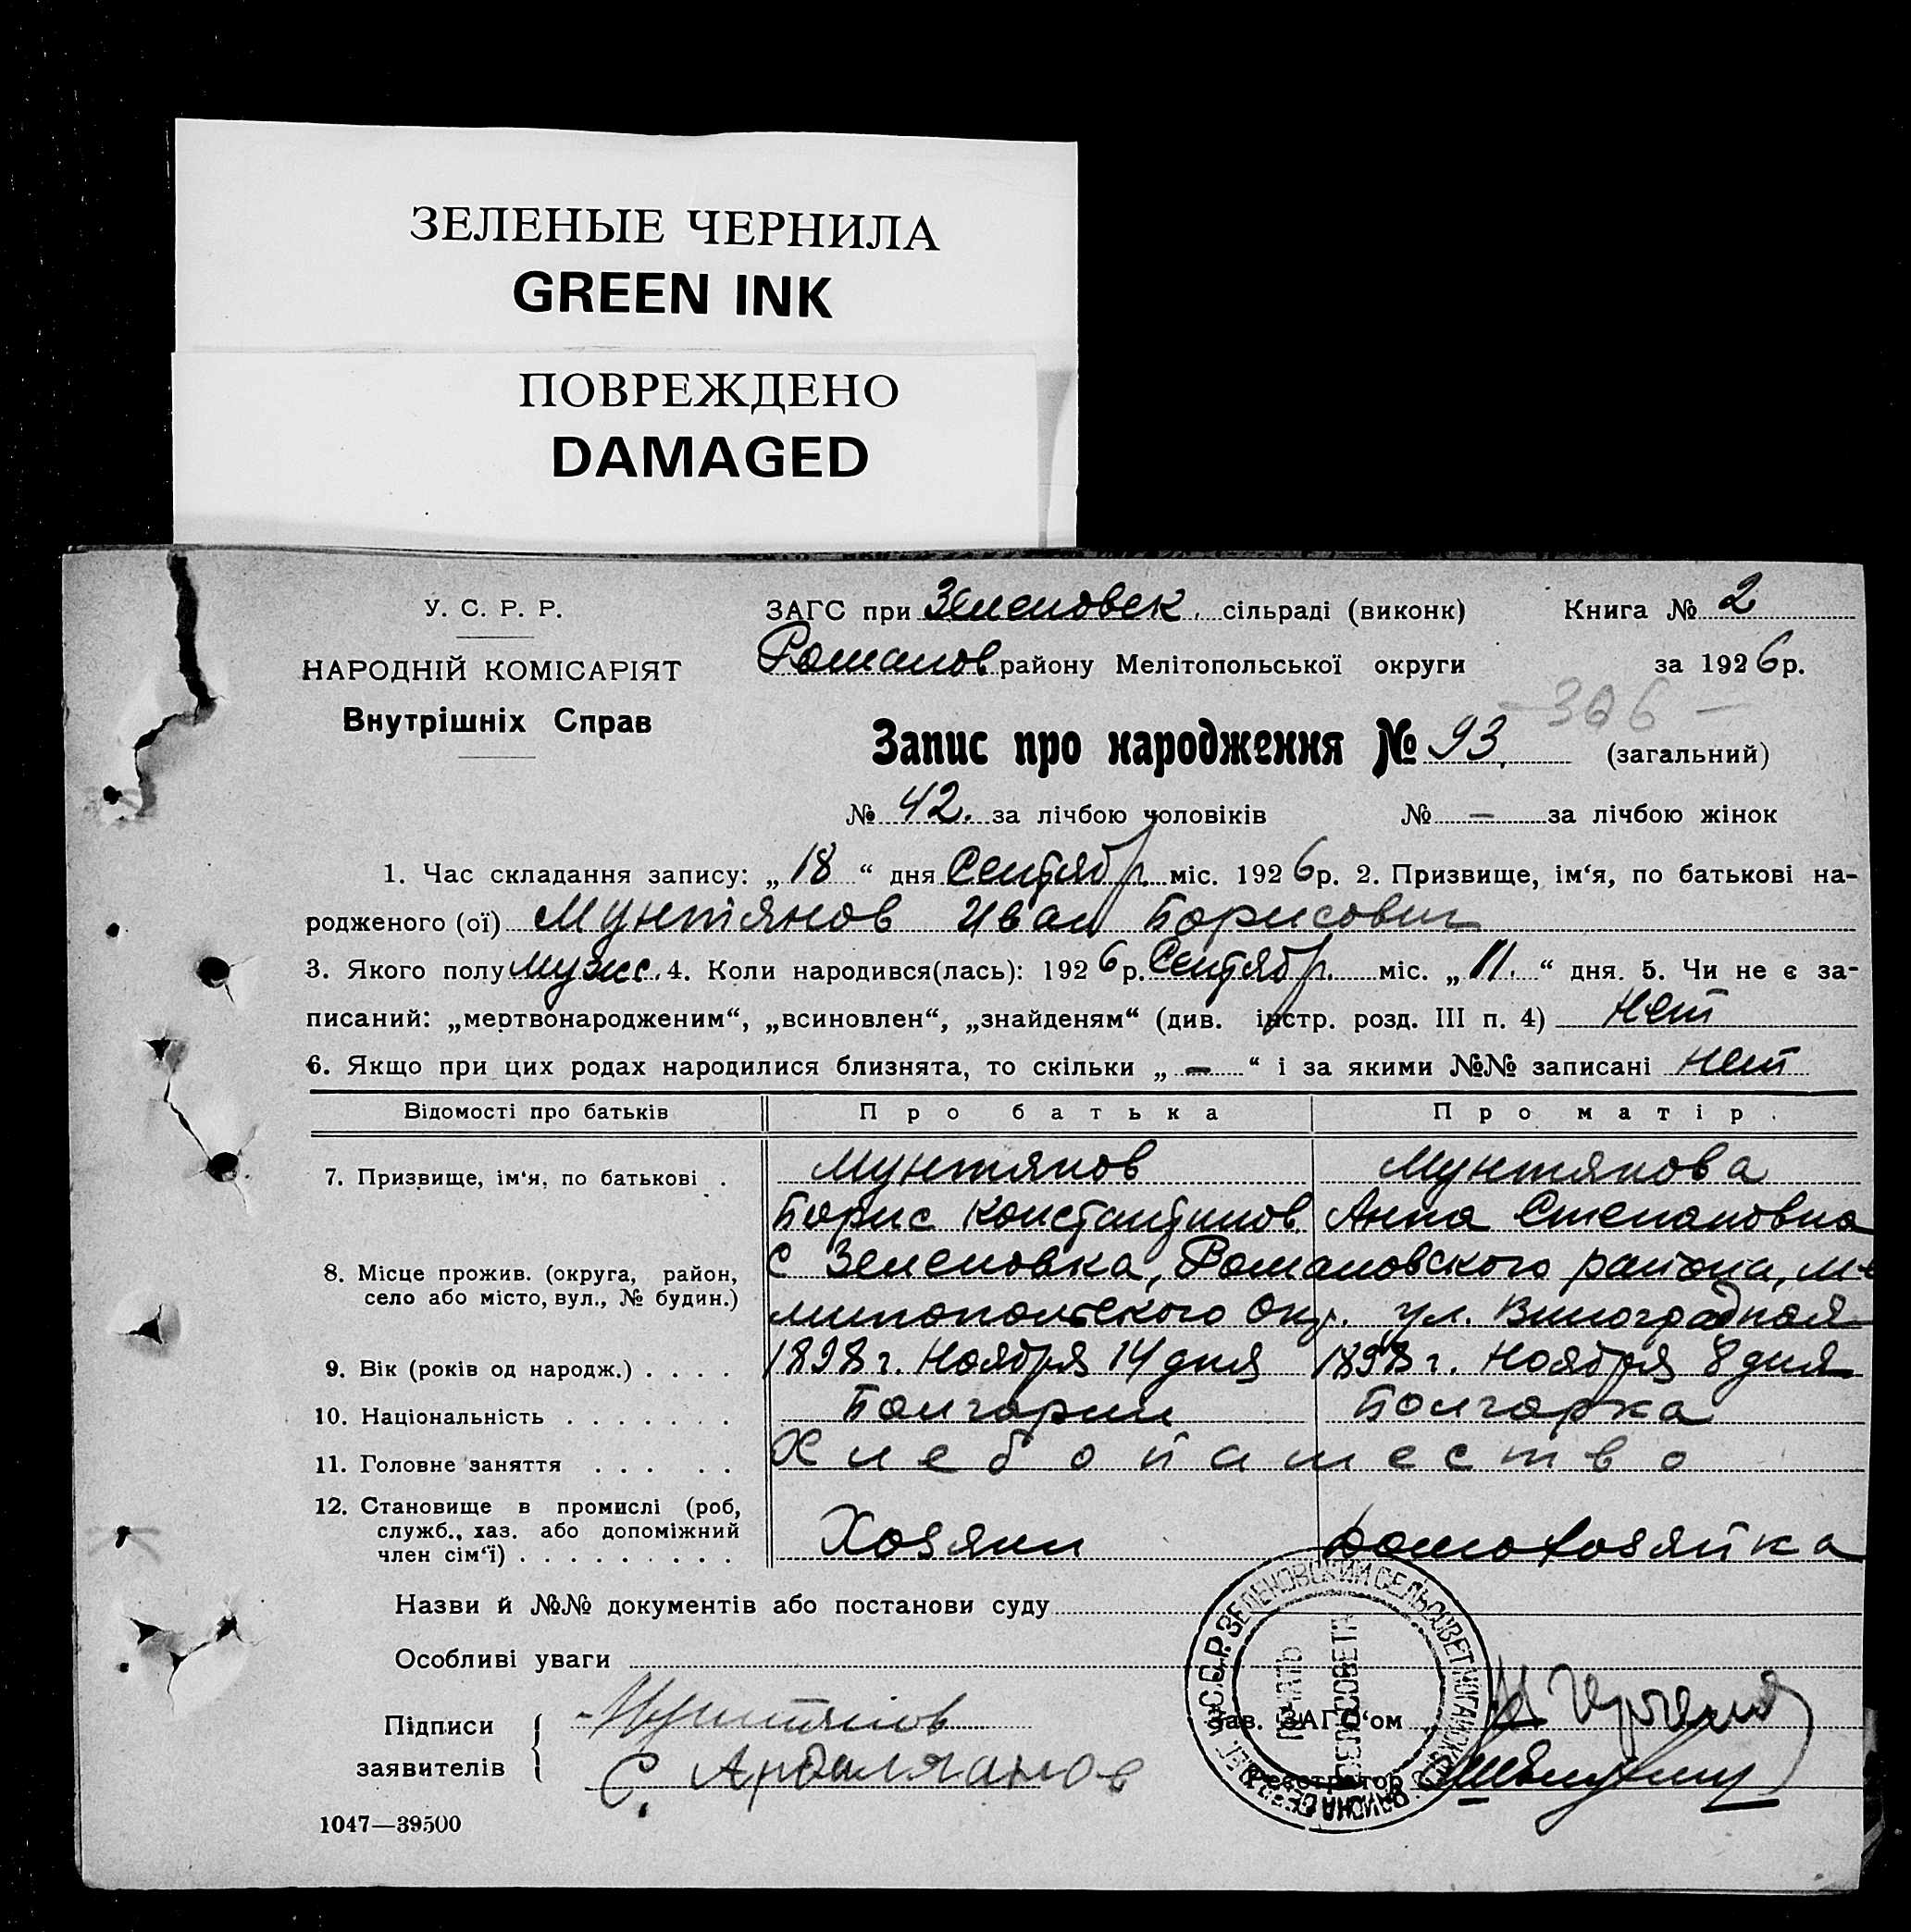 ЗЕЛЕНЫЕ ЧЕРНИЛА
GREEN INK
ПОВРЕЖДЕНО
DAMAGED
У. С. Р. Р.
НАРОДНІЙ КОМІСАРІЯТ
Внутрішніх Справ
ЗАГС при Зеленовск. сільраді (виконк) Книга № 2
Романов району Мелітопольської округи за 1926 р.
Запис про народження № 93. (загальний)
№ 42. за лічбою чоловіків № — за лічбою жінок
1. Час складання запису: „18“ дня Сентябр. міс. 1926 р. 2. Призвище, ім‘я, по батькові на-
родженого (ої) Мунтянов Иван Борисович
3. Якого полу мужс. 4. Коли народився(лась): 1926 р. Сентябр. міс. „11.“ дня. 5. Чи не є за-
писаний: „мертвонародженим“, „всиновлен“, „знайденям“ (див. інстр. розд. III п. 4) Нет
6. Якщо при цих родах народилися близнята, то скільки „—“ і за якими №№ записані нет
Відомості про батьків Про батька Про матір.
7. Призвище, ім‘я, по батькові . Мунтянов Мунтянова
Борис Константинов. Анна Степановна
8. Місце прожив. (округа, район, село або місто, вул., № будин.) с Зеленовка, Романовского района, Ме
литопольского Окр. ул. Виноградная
9. Вік (років од народж.) . . . . 1898 г. Ноября 14 дня 1898 г. Ноября 8 дня
10. Національність . . . . . . . Болгарин Болгарка
11. Головне заняття . . . . . Хлебопашество
12. Становище в промислі (роб, служб., хаз. або допоміжний член сім‘ї) . . . . . . . . . Хозяин домохозяйка
Назви й №№ документів або постанови суду
Особливі уваги
Підписи заявителів Мунтянов
С. Арабаджанов
Зав. ЗАГС‘ом
Реєстратор
ПЕЧАТЬ СЕЛЬСОВЕТА
1047—39500